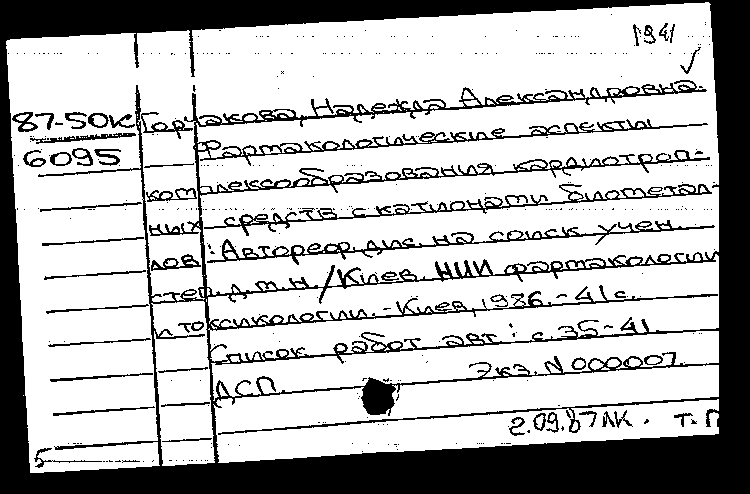 1941
87-50к Горчакова, Надежда Александровна.
6095 Фармакологические аспекты
комплексообразования кардиотроп-
ных средств с катионами биометал-
лов: Автореф. дис. на соиск учен.
степ. д. м. н. / Киев. НИИ фармакологии
и токсикологии. - Киев, 1986. - 41 с.
Список работ авт: с. 35-41.
ДСП. Экз. N 000007.
2.09.87 ЛК. Т. П
5